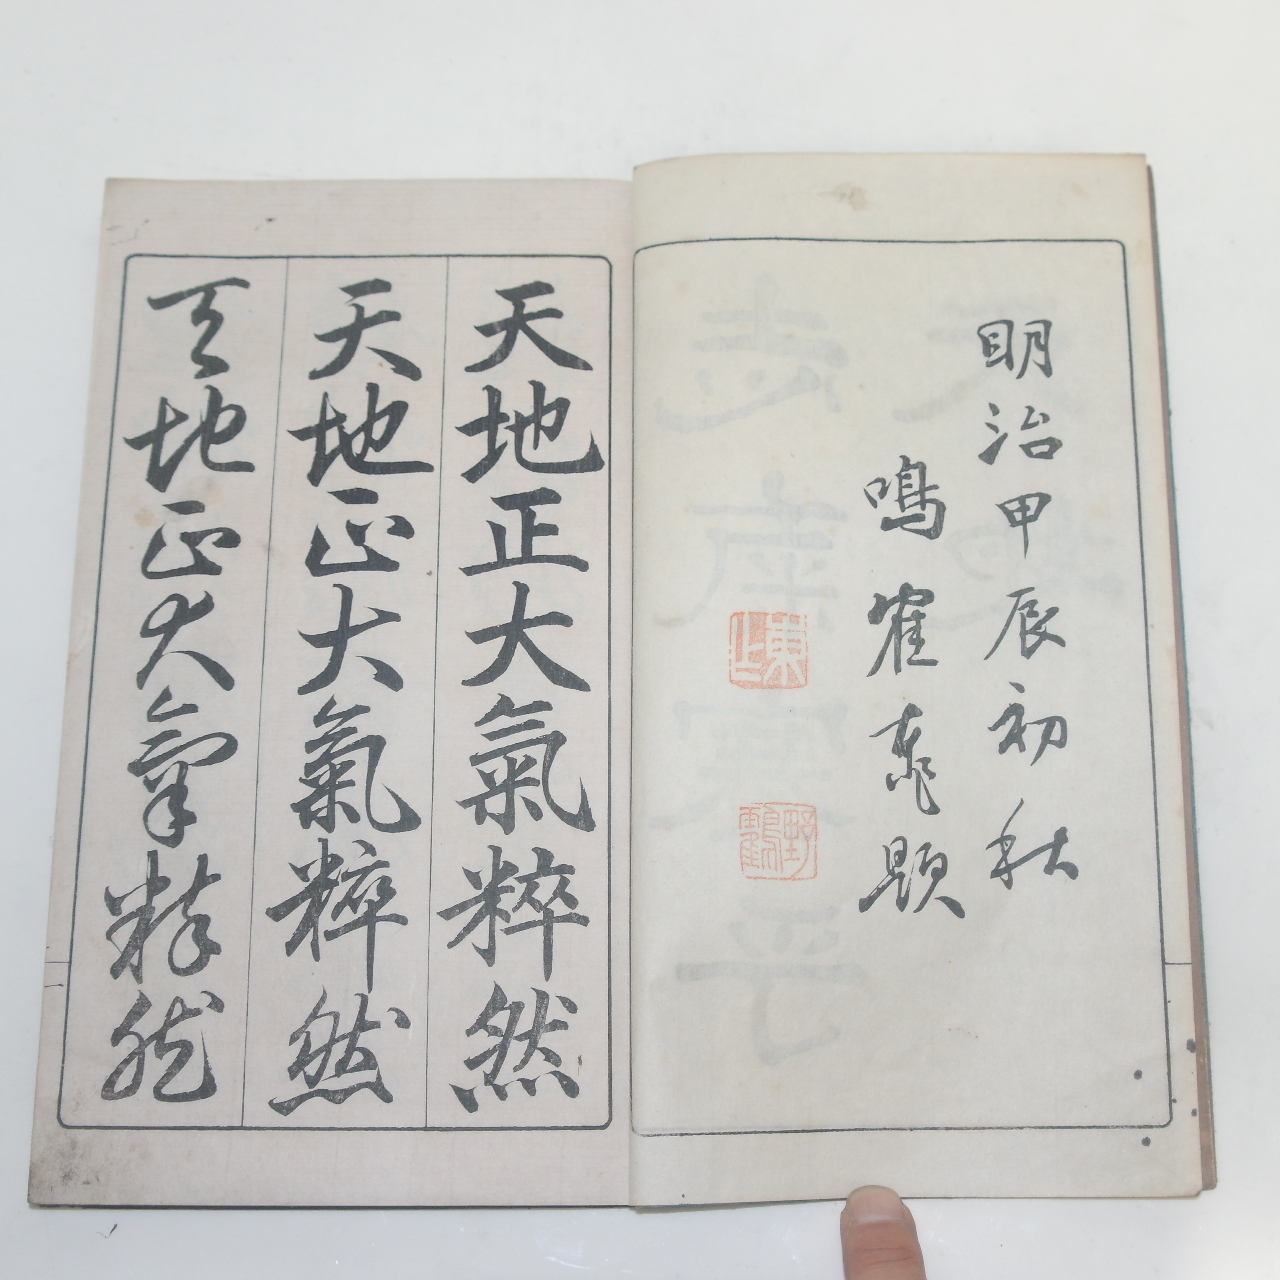 明治甲辰初秋
鳴寉東作題
東乍
野鶴
天地正大氣粹然
天地正大氣粹然
天地正大氣粹然